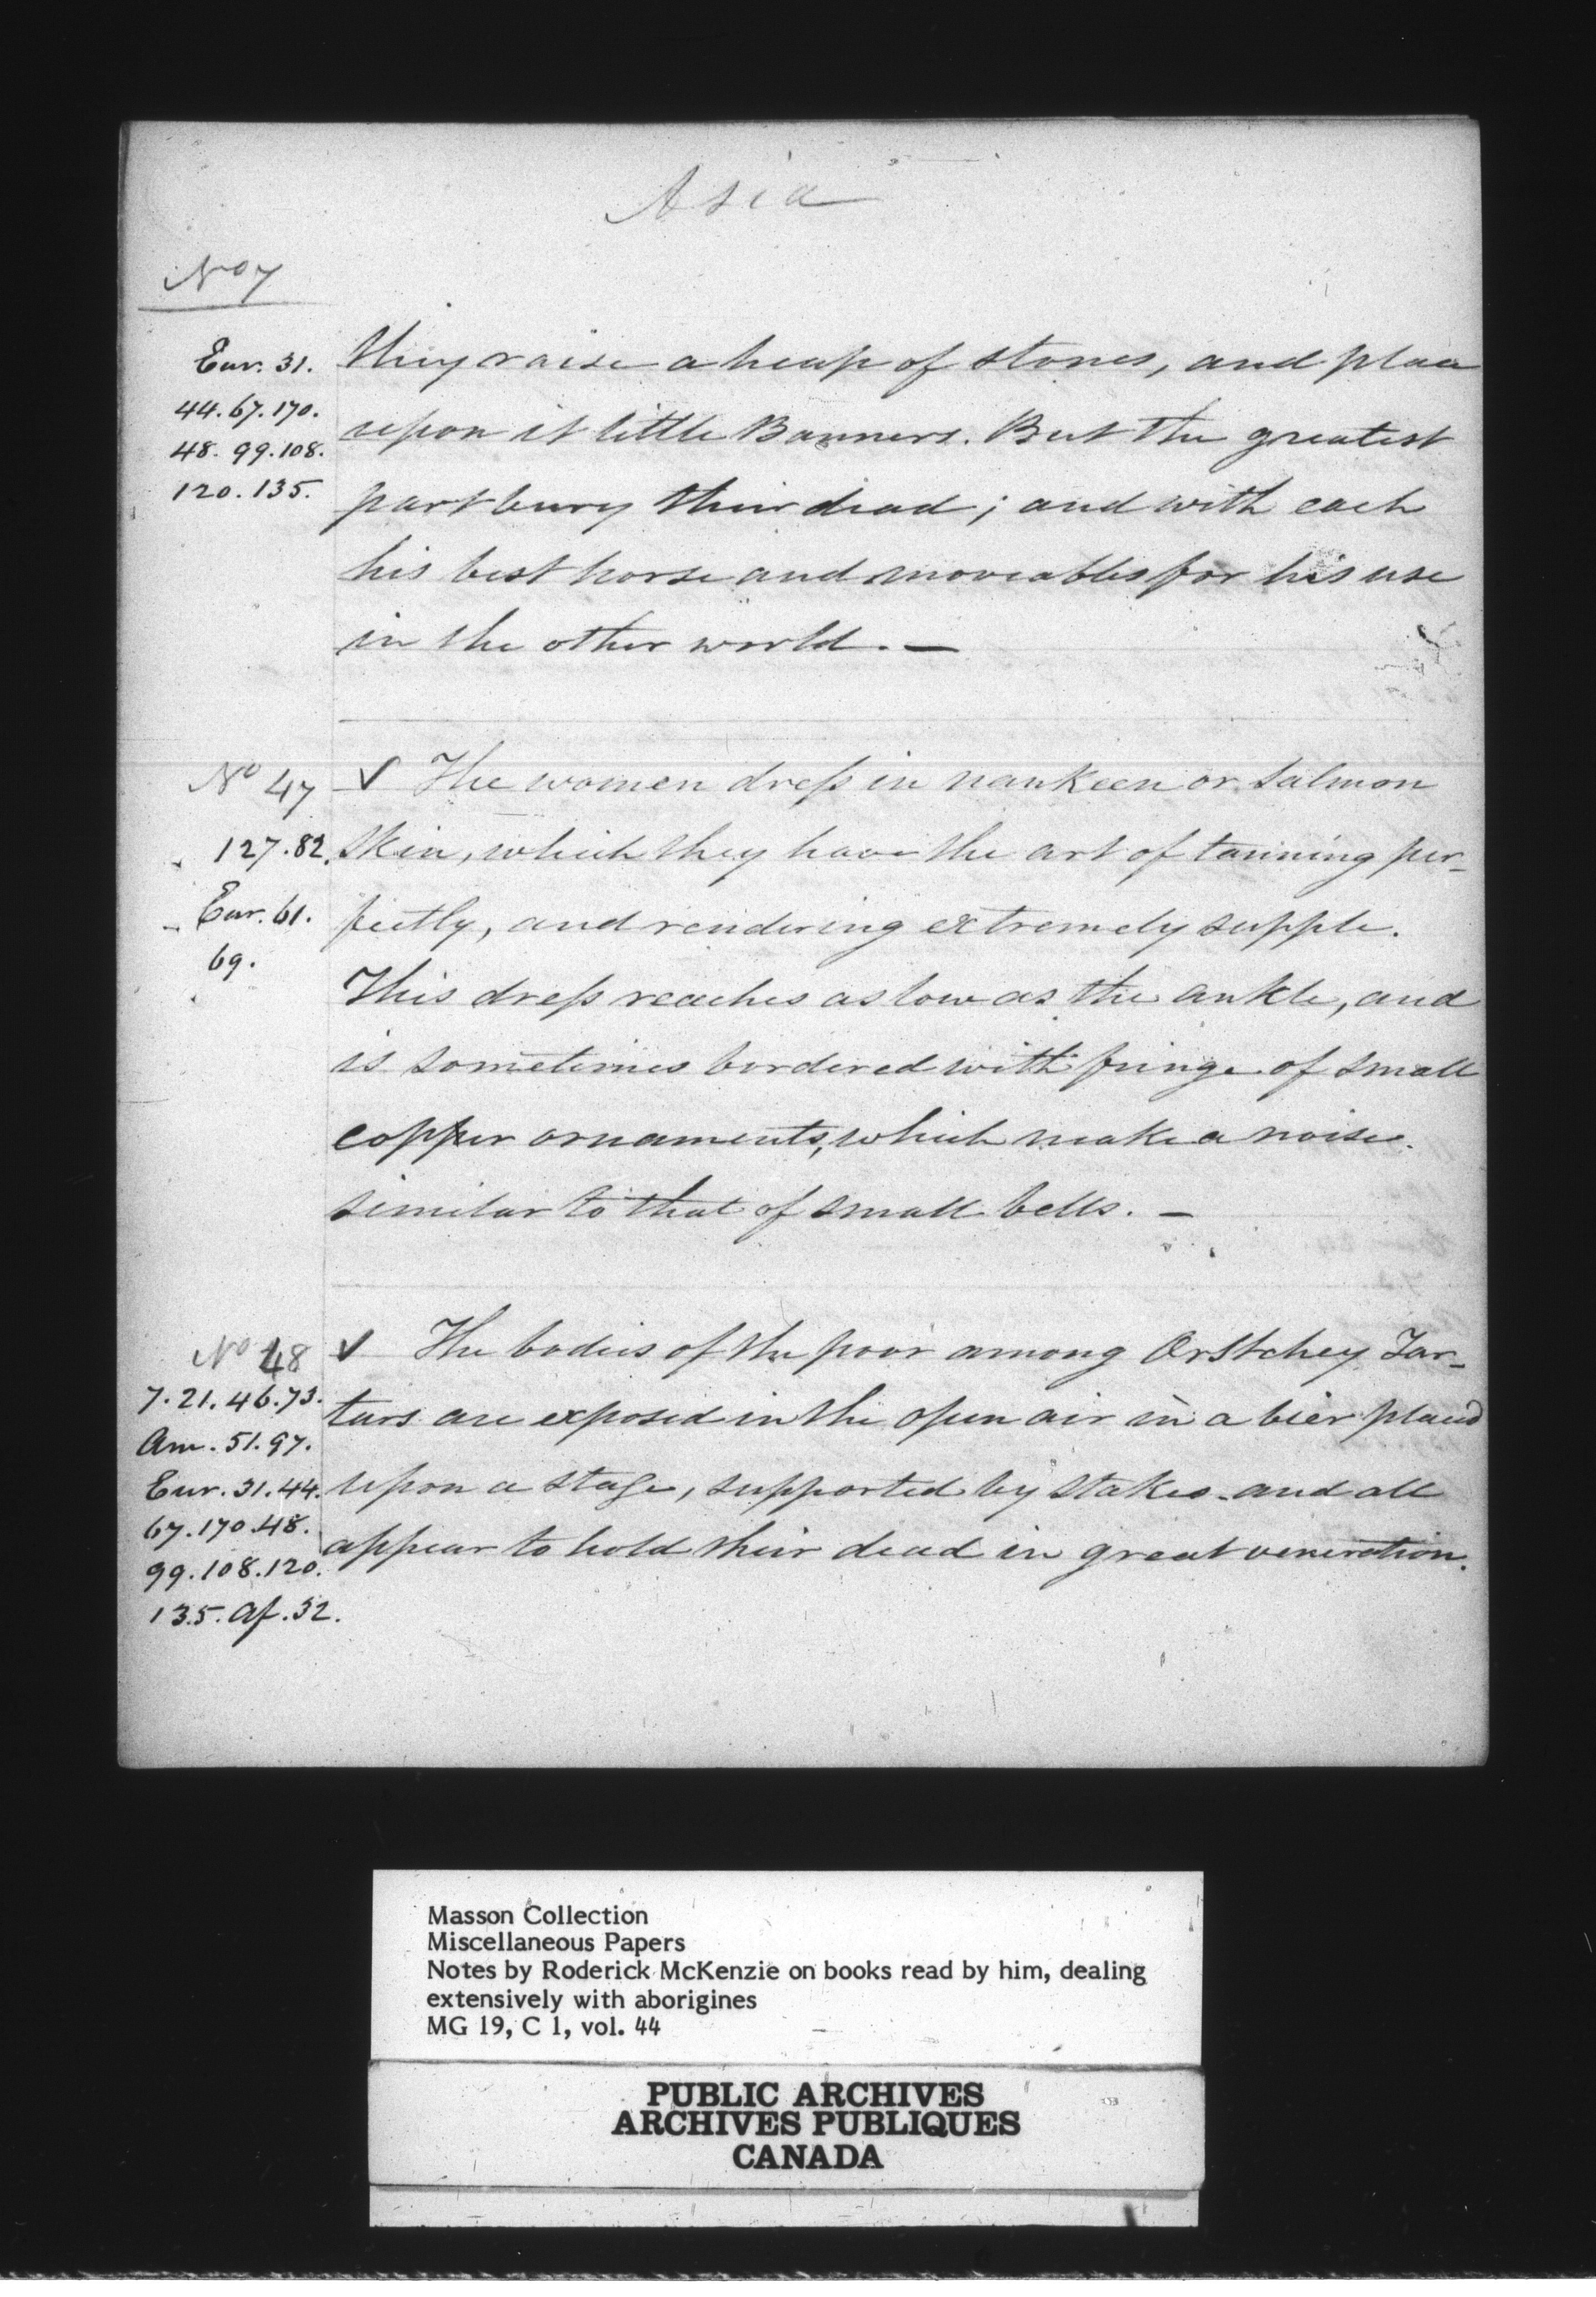 Asia
No 7
Eur. 31.
44. 67. 170.
48. 99. 108.
120. 135.
they raise a heap of stones, and place
upon it little Banners. But the greatest
part bury their dead; and with each
his best horse and moveables for his use
in the other world. —
No 47
127. 82.
Eur. 61.
69.
✓ The women dress in nankeen or salmon
skin, which they have the art of tanning per-
fectly, and rendering extremely supple.
This dress reaches as low as the ankle, and
is sometimes bordered with fringe of small
copper ornaments, which make a noise
similar to that of small bells. —
No 48
7. 21. 46. 73.
Am. 51. 97.
Eur. 31. 44.
67. 170. 48.
99. 108. 120.
135. Af. 52.
✓ The bodies of the poor among Orstchey Tar-
tars are exposed in the open air in a bier placed
upon a stage, supported by stakes and all
appear to hold their dead in great veneration.
Masson Collection
Miscellaneous Papers
Notes by Roderick McKenzie on books read by him, dealing
extensively with aborigines
MG 19, C 1, vol. 44
PUBLIC ARCHIVES
ARCHIVES PUBLIQUES
CANADA